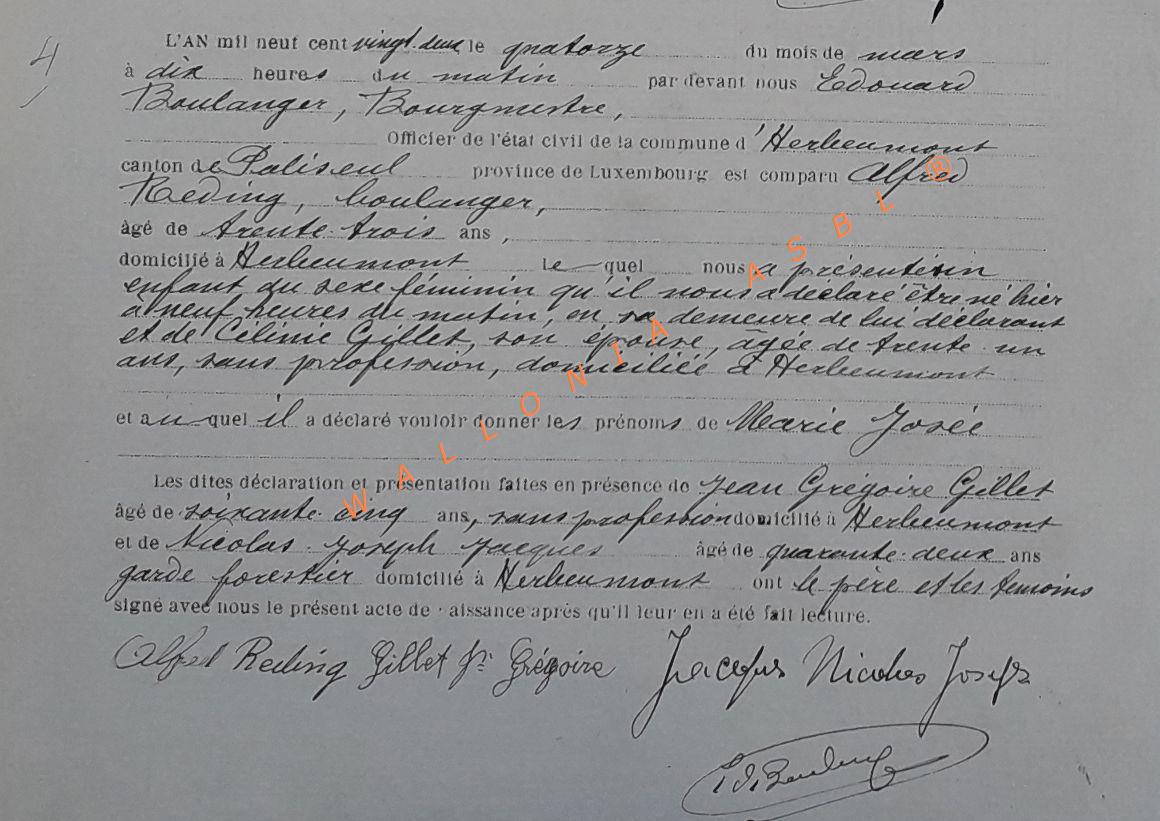 4
L'AN mil neuf cent vingt-deux le quatorze du mois de mars
à dix heures du matin par devant nous Edouard
Boulanger, Bourgmestre,
Officier de l'état civil de la commune d'Herbeumont
canton de Paliseul province de Luxembourg est comparu Alfred
Reding, boulanger,
âgé de trente-trois ans,
domicilié à Herbeumont lequel nous a présenté un
enfant du sexe féminin qu'il nous a déclaré être né hier
à neuf heures du matin, en sa demeure de lui déclarant
et de Célinie Gillet, son épouse, âgée de trente-un
ans, sans profession, domiciliée à Herbeumont
et auquel il a déclaré vouloir donner les prénoms de Marie Josée
Les dites déclaration et présentation faites en présence de Jean Grégoire Gillet
âgé de soixante-cinq ans, sans profession domicilié à Herbeumont
et de Nicolas-Joseph Jacques âgé de quarante-deux ans
garde forestier domicilié à Herbeumont ont le père et les témoins
signé avec nous le présent acte de aissance après qu'il leur en a été fait lecture.
Alfred Reding Gillet Jn Grégoire Jacques Nicolas Joseph
Ed. Boulanger
WALLONIA ASBL ®